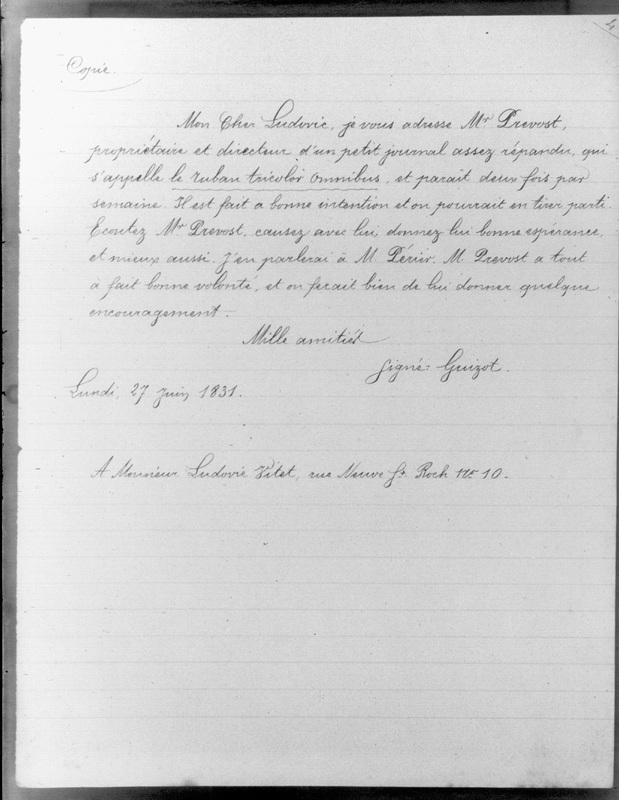 4
Copie.
Mon Cher Ludovic, je vous adresse Mr Prevost,
propriétaire et directeur d'un petit journal assez répandu, qui
s'appelle le ruban tricolor omnibus, et parait deux fois par
semaine. Il est fait a bonne intention et on pourrait en tirer parti.
Ecoutez Mr Prevost, causez avec lui, donnez lui bonne espérance,
et mieux aussi. J'en parlerai à M. Périer. M. Prevost a tout
à fait bonne volonté, et on ferait bien de lui donner quelque
encouragement.
Mille amitiés
Signé: Guizot.
Lundi, 27 Juin 1831.
A Monsieur Ludovic Vitet, rue Neuve St. Roch No 10.